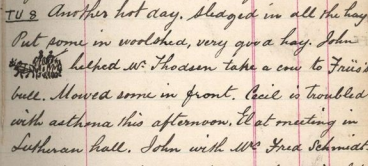 TU 8 Another hot day. Sledged in all the hay
Put some in woolshed, very good hay. John
helped Mr Thodsen take a cow to Friis's
bull. Mowed some in front. Cecil is troubled
with asthma this afternoon. El at meeting in
Lutheran hall. John with Mrs Fred Schmidt.